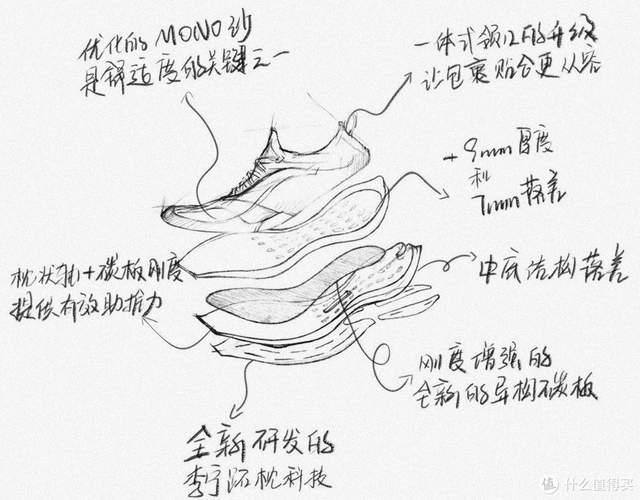 优化的MONO纱
是舒适度的关键之一
一体式领口的升级
让包裹贴合更从容
+9mm厚度
和
7mm落差
枕状轴+碳板刚度
提供有效助推力
中底结构落差
刚度增强的
全新的异构碳板
全新研发的
李宁 枕科技
值 什么值得买